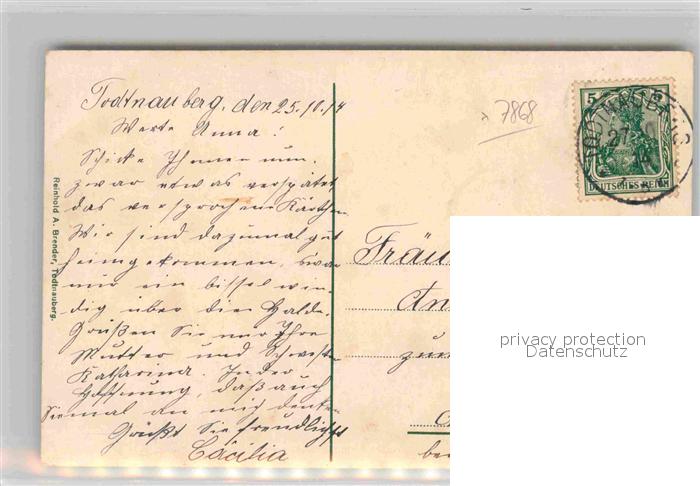 Todtnauberg, den 25.10.14
Werte Anna!
Schicke Ihnen nun,
zwar etwas verspätet
das versprochene Kärtchen
Wir sind dazumal gut
heimgekommen, zwar
nur ein bissel win-
dig über die Halde.
Grüßen Sie mir Ihre
Mutter und Schwester
Katharina. In der
Hoffnung, daß auch
Sie mal an mich denken
Grüßt Sie freundlichst
Cäcilia
Reinhold A. Brender, Todtnauberg.
7868
5
DEUTSCHES REICH
TODTNAUBERG
27
14
Fräu
An
zum
privacy protection
Datenschutz